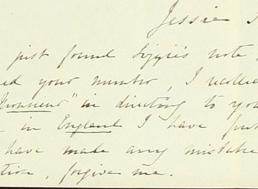 Jessie
just found Lizzie's note,
your number, I recollec
in directing to yo
in England I have just
have made any mistake
tion, forgive me.